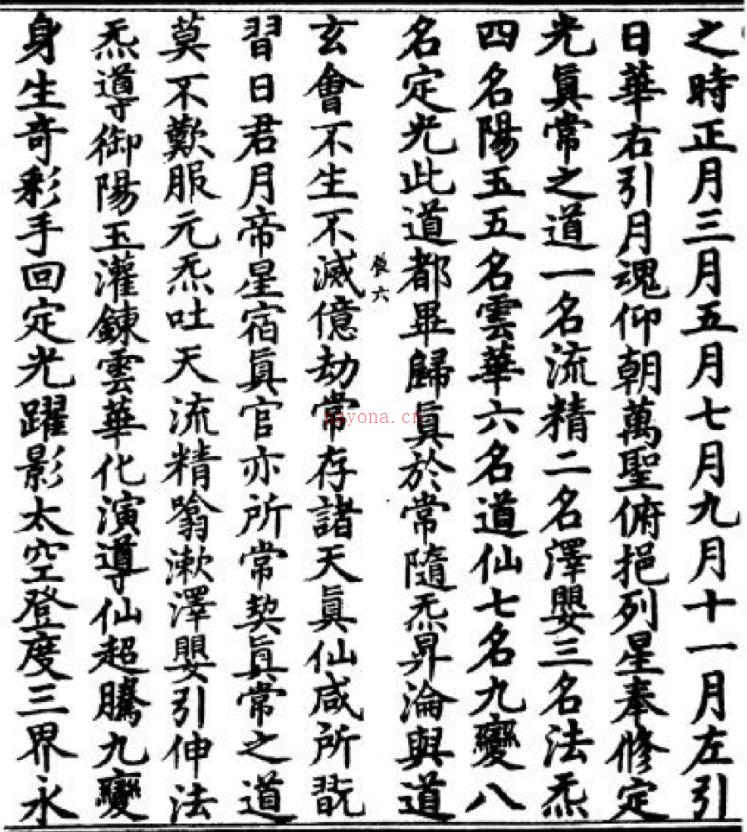 之時正月三月五月七月九月十一月左引
日華右引月魂仰朝萬聖俯挹列星奉修定
光眞常之道一名流精二名澤嬰三名法炁
四名陽玉五名雲華六名道仙七名九變八
名定光此道都畢歸眞於常隨炁昇淪與道
玄會不生不滅億劫常存諸天眞仙咸所翫
習日君月帝星宿眞官亦所常契眞常之道
莫不歎服元炁吐天流精噏漱澤嬰引伸法
炁導御陽玉灌鍊雲華化演導仙超騰九變
身生奇彩手回定光躍影太空登度三界永